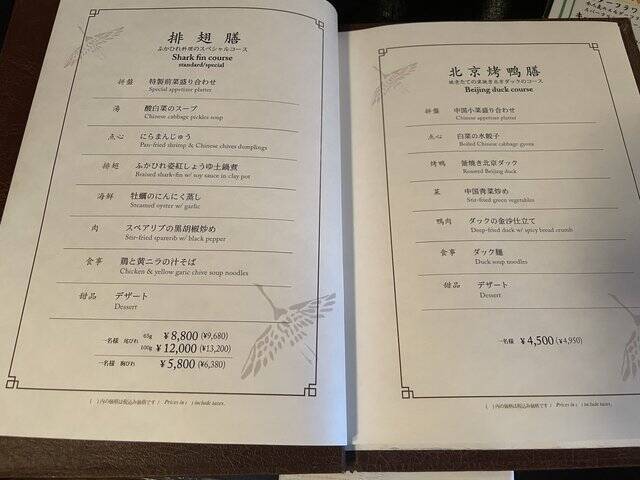 排翅膳
ふかひれ料理のスペシャルコース
Shark fin course
standard/special
拼盤 特製前菜盛り合わせ
Special appetizer platter
湯 酸白菜のスープ
Chinese cabbage pickles soup
点心 にらまんじゅう
Pan-fried shrimp & Chinese chives dumplings
排翅 ふかひれ姿紅しょうゆ土鍋煮
Braised shark-fin w/ soy sauce in clay pot
海鮮 牡蠣のにんにく蒸し
Steamed oyster w/ garlic
肉 スペアリブの黒胡椒炒め
Stir-fried sparerib w/ black pepper
食事 鶏と黄ニラの汁そば
Chicken & yellow garlic chive soup noodles
甜品 デザート
Dessert
一名様 尾びれ 65g ¥8,800 (¥9,680)
100g ¥12,000 (¥13,200)
一名様 胸びれ ¥5,800 (¥6,380)
( )内の価格は税込み価格です / Prices in ( ) include taxes.
北京烤鴨膳
焼きたての窯焼き北京ダックのコース
Beijing duck course
拼盤 中国小菜盛り合わせ
Chinese appetizer platter
点心 白菜の水餃子
Boiled Chinese cabbage gyoza
烤鴨 釜焼き北京ダック
Roasted Beijing duck
菜 中国青菜炒め
Stir-fried green vegetables
鴨肉 ダックの金沙仕立て
Deep-fried duck w/ spicy bread crumb
食事 ダック麺
Duck soup noodles
甜品 デザート
Dessert
一名様 ¥4,500 (¥4,950)
( )内の価格は税込み価格です / Prices in ( ) include taxes.